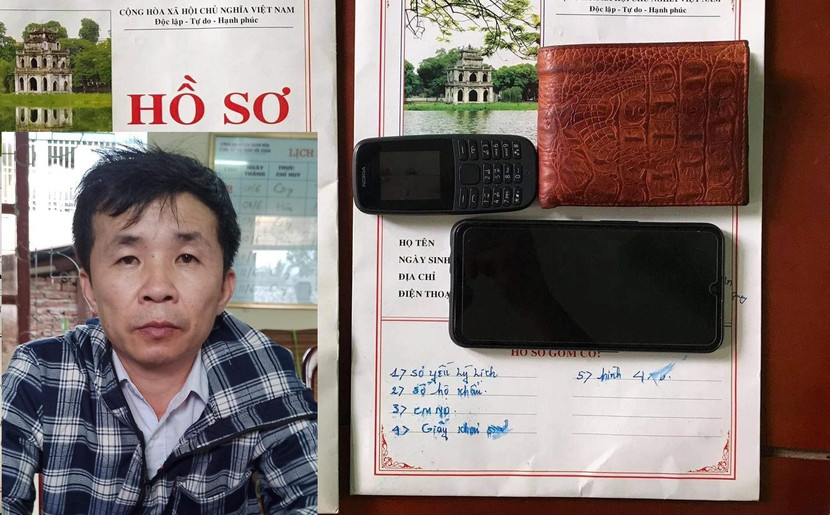 CỘNG HÒA XÃ HỘI CHỦ NGHĨA VIỆT NAM
Độc lập - Tự do - Hạnh phúc
HỒ SƠ
LỊCH
NGÀY
THÁNG
TRỰC
CHỈ HUY
Độc lập - Tự do - Hạnh phúc
NOKIA
HỌ TÊN
NGÀY SINH
ĐỊA CHỈ
ĐIỆN THOẠ
HỒ SƠ GỒM CÓ:
1> Sơ yếu lý lịch
2> Sổ hộ khẩu
3> CMND.
4> Giấy khai
5> hình 4